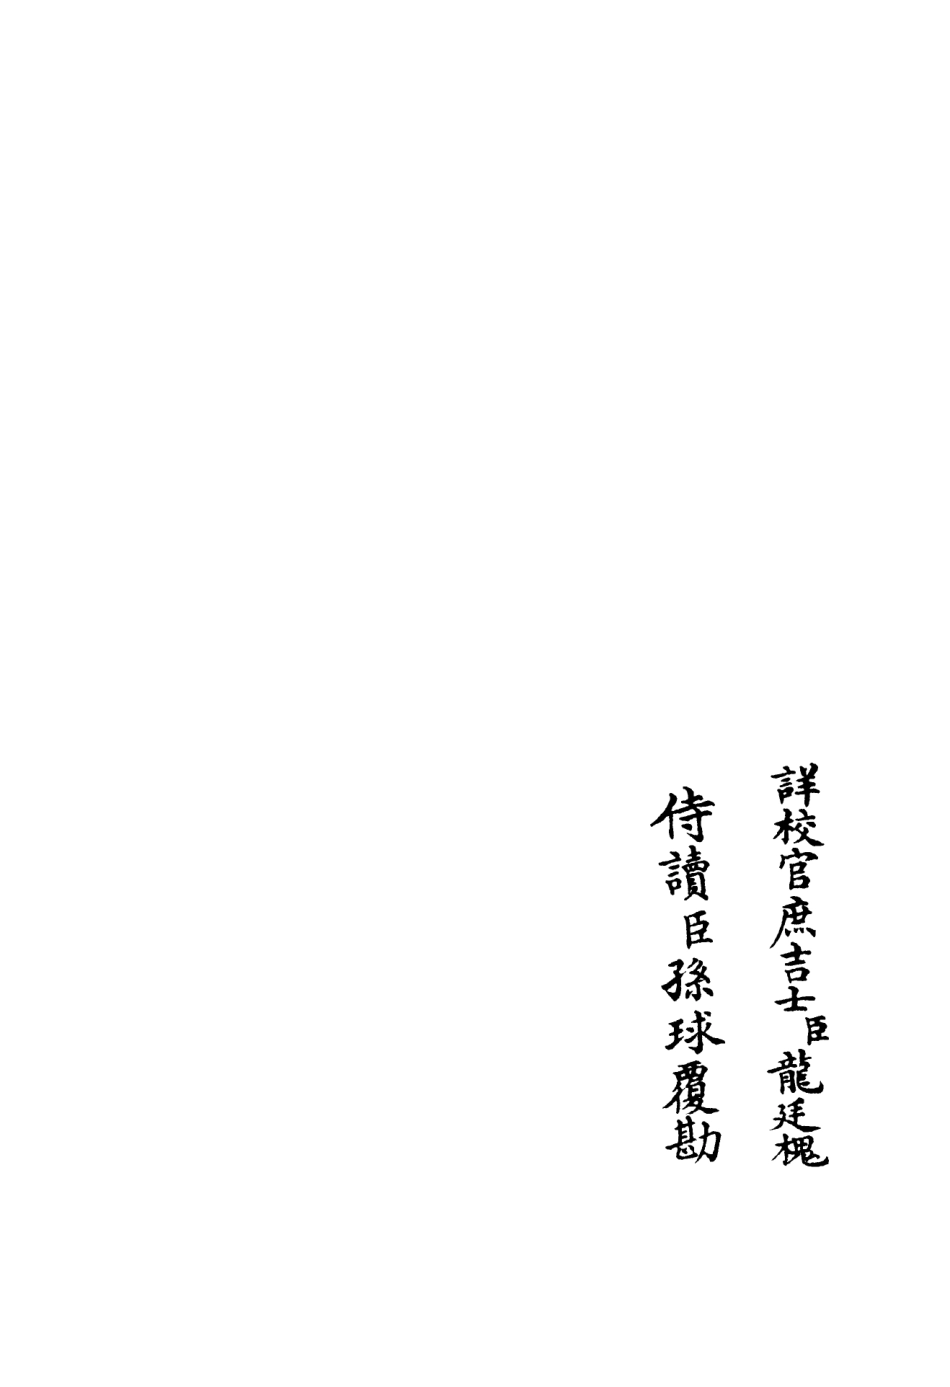 詳校官庶吉士臣龍廷槐
侍讀臣孫球覆勘